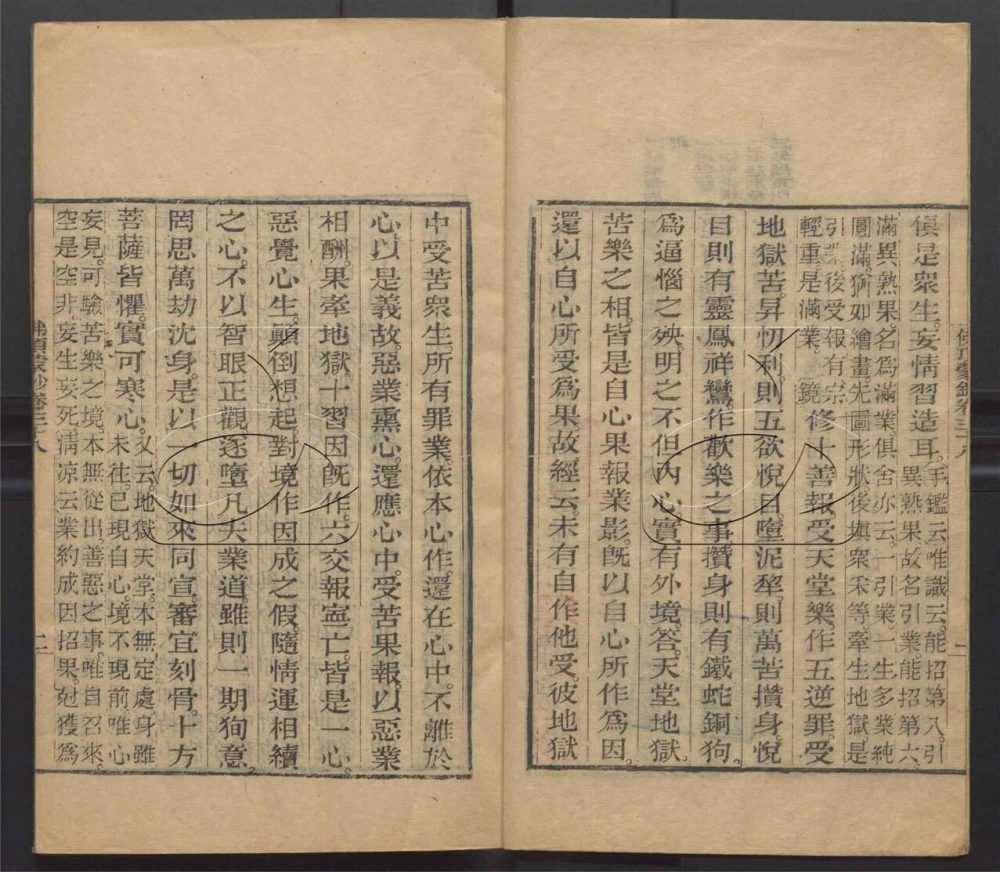 傎是衆生。妄情習造耳。手鑑云。唯識云。能招第八。引
異熟果。故名引業。能招第六。
滿異熟果。名爲滿業。俱舍亦云。一引業。一生多業純
圓滿。猶如繪畫。先圖形狀。後塡衆采等。牽生地獄是
引業。後受報有
輕重。是滿業。宗鏡修十善報。受天堂樂。作五逆罪。受
地獄苦。昇忉利則五欲悅目。墮泥犂則萬苦攢身。悅
目則有靈鳳祥鸞。作歡樂之事。攢身則有鐵蛇銅狗。
爲逼惱之殃。明之不但內心。實有外境。答。天堂地獄。
苦樂之相。皆是自心果報業影。旣以自心所作爲因。
還以自心所受爲果。故經云。未有自作他受。彼地獄
佛頂蒙鈔卷三十八
一
中受苦衆生。所有罪業。依本心作。還在心中。不離於
心。以是義故。惡業熏心。還應心中受苦果報。以惡業
相酬。果牽地獄。十習因旣作。六交報寧亡。皆是一心。
惡覺心生。顚倒想起。對境作因成之假。隨情運相續
之心。不以智眼正觀。逐墮凡夫業道。雖則一期狥意。
罔思萬劫沈身。是以一切如來同宣。審宜刻骨。十方
菩薩皆懼。實可寒心。又云。地獄天堂。本無定處。身雖
未往。已現自心。境不現前。唯心
妄見。可驗苦樂之境。本無從出。善惡之事。唯自召來。
空是空非。妄生妄死。淸凉云。業約成因招果。尅獲爲
佛頂蒙鈔卷三十八
二